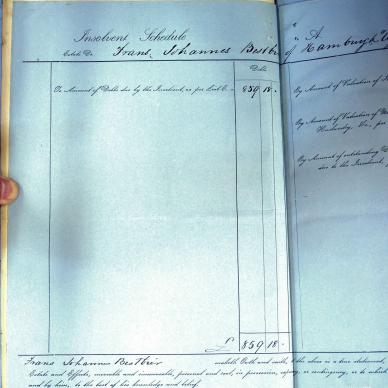 Insolvent Schedule
Estate Dr. Frans Johannes Bestbier
Debts
To Amount of Debts due by the Insolvent, as per List
859 18 -
£ 859 18 -
Frans Johannes Bestbier maketh Oath and saith, the above is a true statement,
Estate and Effects, moveable and immoveable, personal and real, in possession, or contingency, or to which
and by him, to the best of his knowledge and belief.
"A"
of Hamburgh
By Amount of Valuation of
By Amount of Valuation of
By Amount of outstanding
due to the Insolvent,